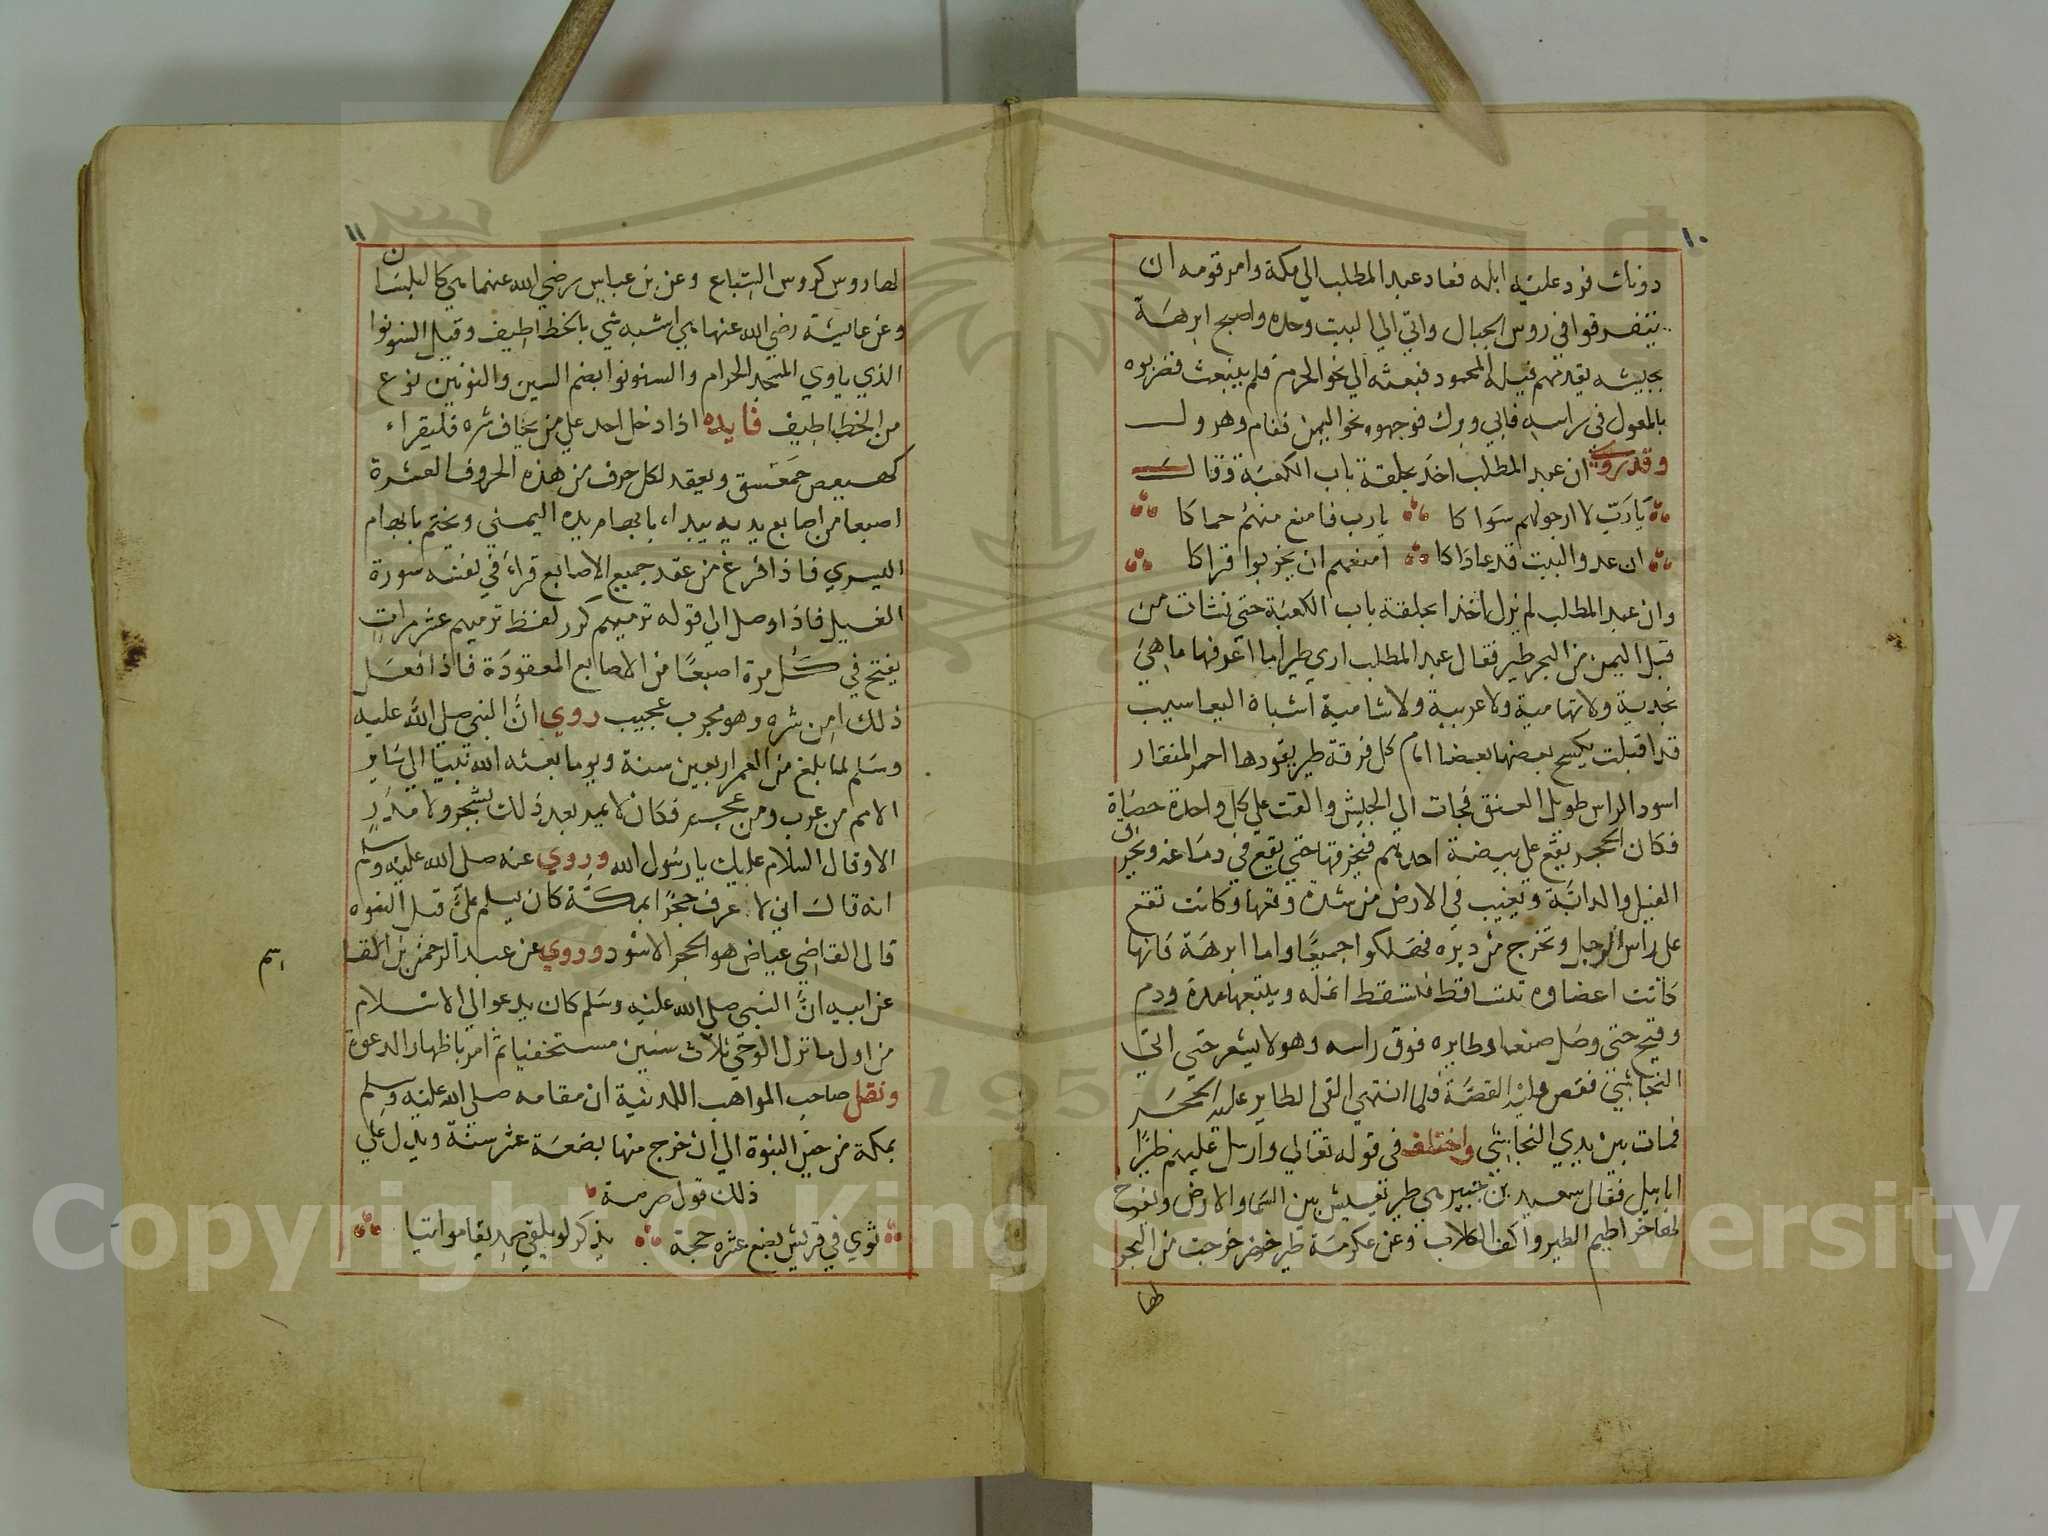 ١٠
دونك فرد عليه ابله فعاد عبد المطلب الي مكة وامر قومه ان
يتفرقوا في روس الجبال واتي الي البيت وحده واصبح ابرهة
بجيشه يقدمهم فيله المحمود فبعثه الي نحو الحرم فلم ينبعث فضربوه
بالمعول في راسه فابي وبرك فوجهوه نحو اليمن فقام وهرول
وقد روي ان عبد المطلب اخذ بحلقة باب الكعبة وقال
يارب لا ارجو لهم سواكا يارب فامنع منهم حماكا
ان عدو البيت قد عاداكا امنعهم ان يخربوا قراكا
وان عبد المطلب لم يزل اخذا بحلقة باب الكعبة حتي نشات من
قبل اليمن من البحر طير فقال عبد المطلب اري طيرا ما اعرفها ما هي
نجدية ولا تهامية ولا عربية ولا شامية اشباه اليعاسيب
قد اقبلت يكسح بعضها بعضا امام كل فرقة طير يقودها احمر المنقار
اسود الراس طويل العنق فجات الي الجيش والقت علي كل واحدة حصاة
فكان الحجر يقع علي بيضة احدهم فيخرقها حتي يقع في دماغه ويخرق
الفيل والدابة ويغيب في الارض من شدة وقعها وكانت تقع
علي راس الرجل وتخرج من دبره فهلكوا جميعا واما ابرهة فانها
كانت اعضاوه تتساقط فتسقط انمله ويتبعها مدة ودم
وقيح حتي وصل صنعا وطايره فوق راسه وهو لا يشعر حتي اتي
النجاشي فقص عليه القصة فلما انتهي القي الطاير عليه الحجر
فمات بين يدي النجاشي واختلف في قوله تعالي وارسل عليهم طيرا
ابابيل فقال سعيد بن جبير هي طير تعيش بين السما والارض وتفرخ
لها خراطيم الطير واكف الكلاب وعن عكرمة طير خضر خرجت من البحر
لها
١١
لها روس كروس السباع وعن بن عباس رضي الله عنهما هي كالبلسان
وعن عايشة رضي الله عنها هي اشبه شي بالخطاطيف وقيل السنونوا
الذي ياوي المسجد الحرام والسنونوا بضم السين والنونين نوع
من الخطاطيف فايده اذا دخل احد علي من يخاف شره فليقراء
كهيعص حمعسق ويعقد لكل حرف من هذه الحروف العشرة
اصبعا من اصابع يديه يبداء بابهام يده اليمني ويختم بابهام
اليسري فاذا فرغ من عقد جميع الاصابع قراء في نفسه سورة
الفيل فاذا وصل الي قوله ترميهم كرر لفظ ترميهم عشر مرات
يفتح في كل مرة اصبعا من الاصابع المعقودة فاذا فعل
ذلك امن شره وهو مجرب عجيب روي ان النبي صلي الله عليه
وسلم لما بلغ من العمر اربعين سنة ويوما بعثه الله نبيا الي ساير
الامم من عرب ومن عجم فكان لا يمر بعد ذلك بشجر ولا مدر
الا وقال السلام عليك يا رسول الله وروي عنه صلي الله عليه وسلم
انه قال اني لا عرف حجرا بمكة كان يسلم علي قبل النبوه
قال القاضي عياض هو الحجر الاسود وروي عن عبد الرحمن بن القا
سم
عن ابيه ان النبي صلي الله عليه وسلم كان يدعو الي الاسلام
من اول ما نزل الوحي ثلاث سنين مستخفيا ثم امر باظهار الدعوة
ونقل صاحب المواهب اللدنية ان مقامه صلي الله عليه وسلم
بمكة من حين النبوة الي ان خرج منها بضعة عشر سنة ويدل علي
ذلك قول صرمة
ثوي في قريش بضع عشره حجة يذكر لو يلقي صديقا مواتيا
Copyright © King Saud University
1957